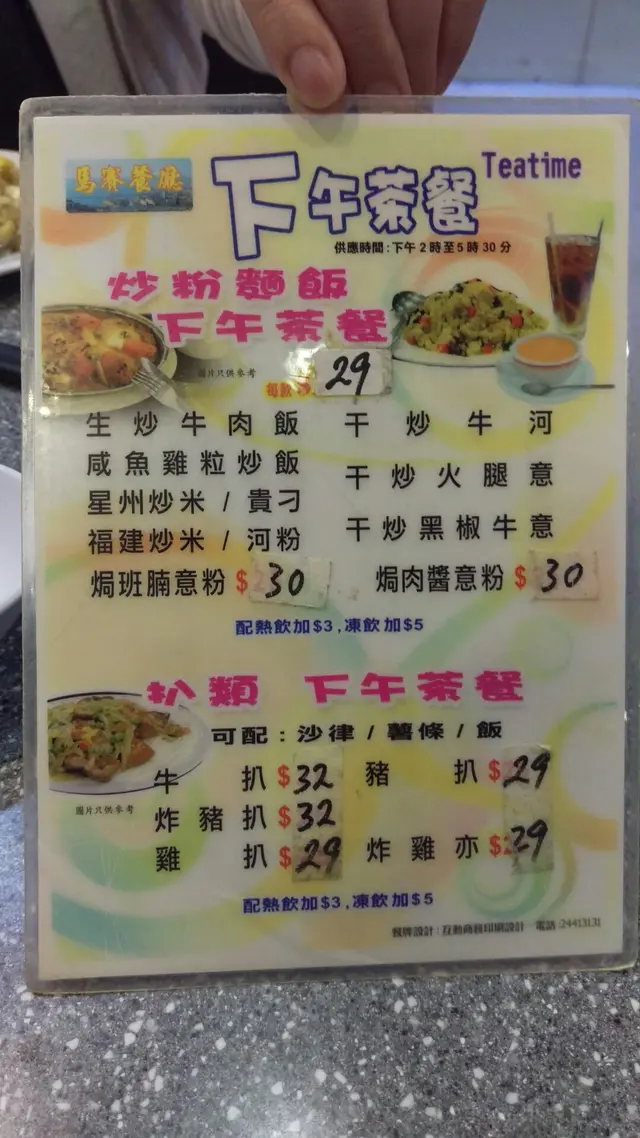 馬賽餐廳
下午茶餐 Teatime
供應時間:下午2時至5時30分
炒粉麵飯
下午茶餐
圖片只供參考
每款 29
生炒牛肉飯 干炒牛河
咸魚雞粒炒飯 干炒火腿意
星州炒米/貴刁
福建炒米/河粉 干炒黑椒牛意
焗班腩意粉 $30 焗肉醬意粉 $30
配熱飲加$3,凍飲加$5
扒類 下午茶餐
可配:沙律/薯條/飯
牛扒 $32 豬扒 $29
圖片只供參考
炸豬扒 $32
雞扒 $29 炸雞亦 $29
配熱飲加$3,凍飲加$5
餐牌設計:互動商務印刷設計 電話:24413131